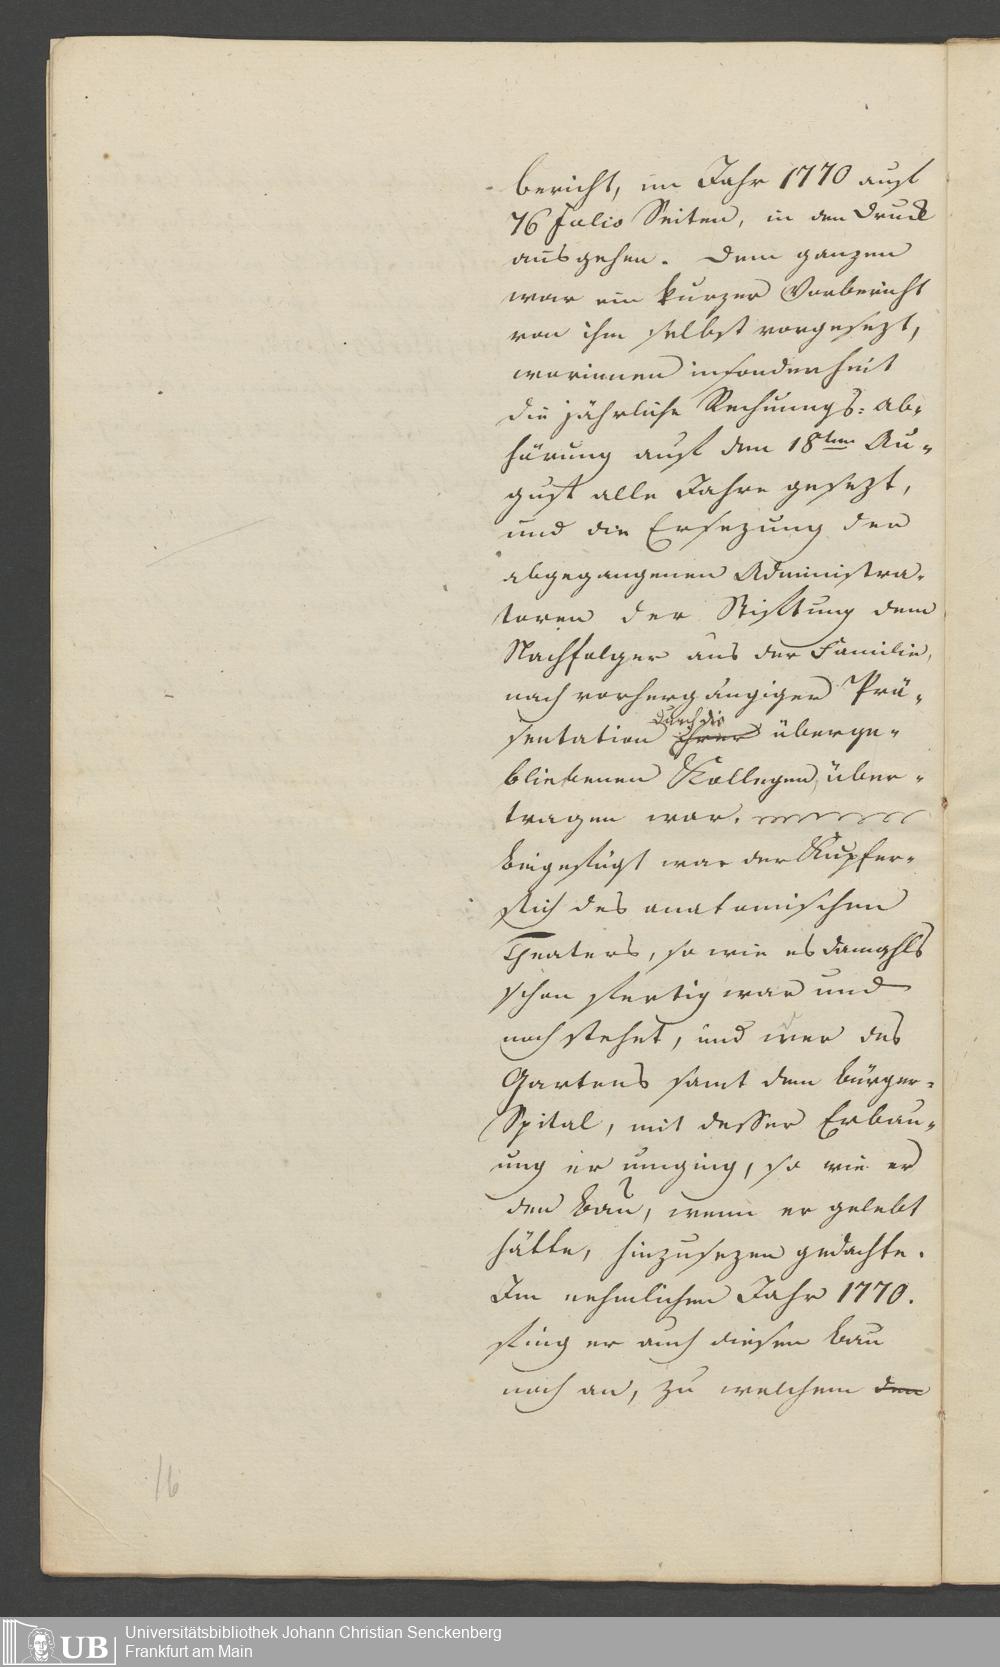 bericht, im Jahr 1770 auf
76 Folio Seiten, in den Druck
ausgehen. Dem ganzen
war ein kurzer Vorbericht
von ihm selbst vorgesezt,
worinnen insonderheit
die jährliche Rechnungs=Ab=
hörung auf den 18ten Au=
gust alle Jahre gesezt,
und die Ersezung der
abgegangenen Administra=
toren der Stiftung dem
Nachfolger aus der Familie,
nach vorhergängiger Prä=
sentation durch die ihrer überge=
bliebenen Kollegen, über=
tragen war.
Beigefügt war der Kupfer=
stich des anatomischen
Theaters, so wie es damahls
schon fertig war und
noch stehet, und der des
Gartens samt dem Bürger=
Spital, mit desser Erbau=
ung er umging, so wie er
den Bau, wenn er gelebt
hätte, hinzusezen gedachte.
Im nehmlichen Jahr 1770.
fing er auch diesen Bau
noch an, zu welchem den
16
UB
Universitätsbibliothek Johann Christian Senckenberg
Frankfurt am Main